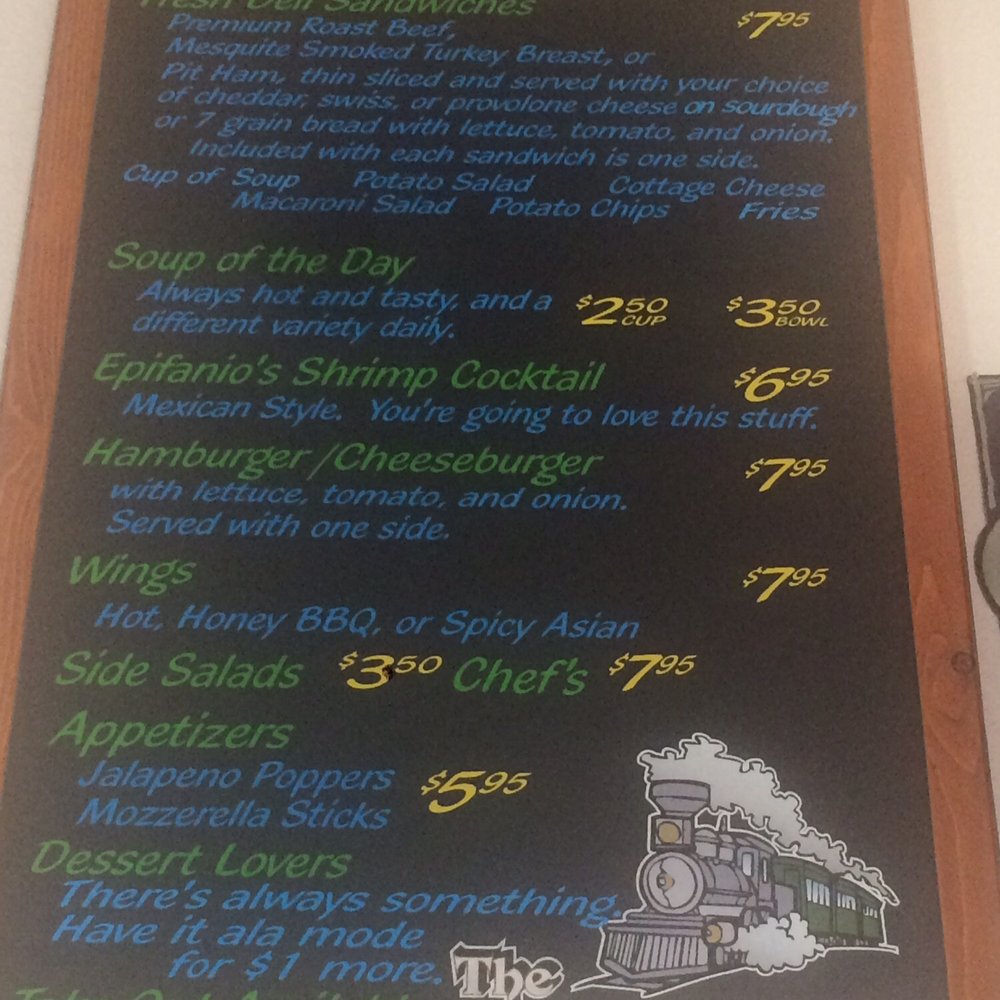 Fresh Deli Sandwiches $7.95
Premium Roast Beef,
Mesquite Smoked Turkey Breast, or
Pit Ham, thin sliced and served with your choice
of cheddar, swiss, or provolone cheese on sourdough
or 7 grain bread with lettuce, tomato, and onion.
Included with each sandwich is one side.
Cup of Soup Potato Salad Cottage Cheese
Macaroni Salad Potato Chips Fries
Soup of the Day
Always hot and tasty, and a $2 50 CUP $3 50 BOWL
different variety daily.
Epifanio's Shrimp Cocktail $6 95
Mexican Style. You're going to love this stuff.
Hamburger/Cheeseburger $7 95
with lettuce, tomato, and onion.
Served with one side.
Wings $7 95
Hot, Honey BBQ, or Spicy Asian
Side Salads $3 50 Chef's $7 95
Appetizers
Jalapeno Poppers $5 95
Mozzerella Sticks
Dessert Lovers
There's always something.
Have it ala mode
for $1 more.
The